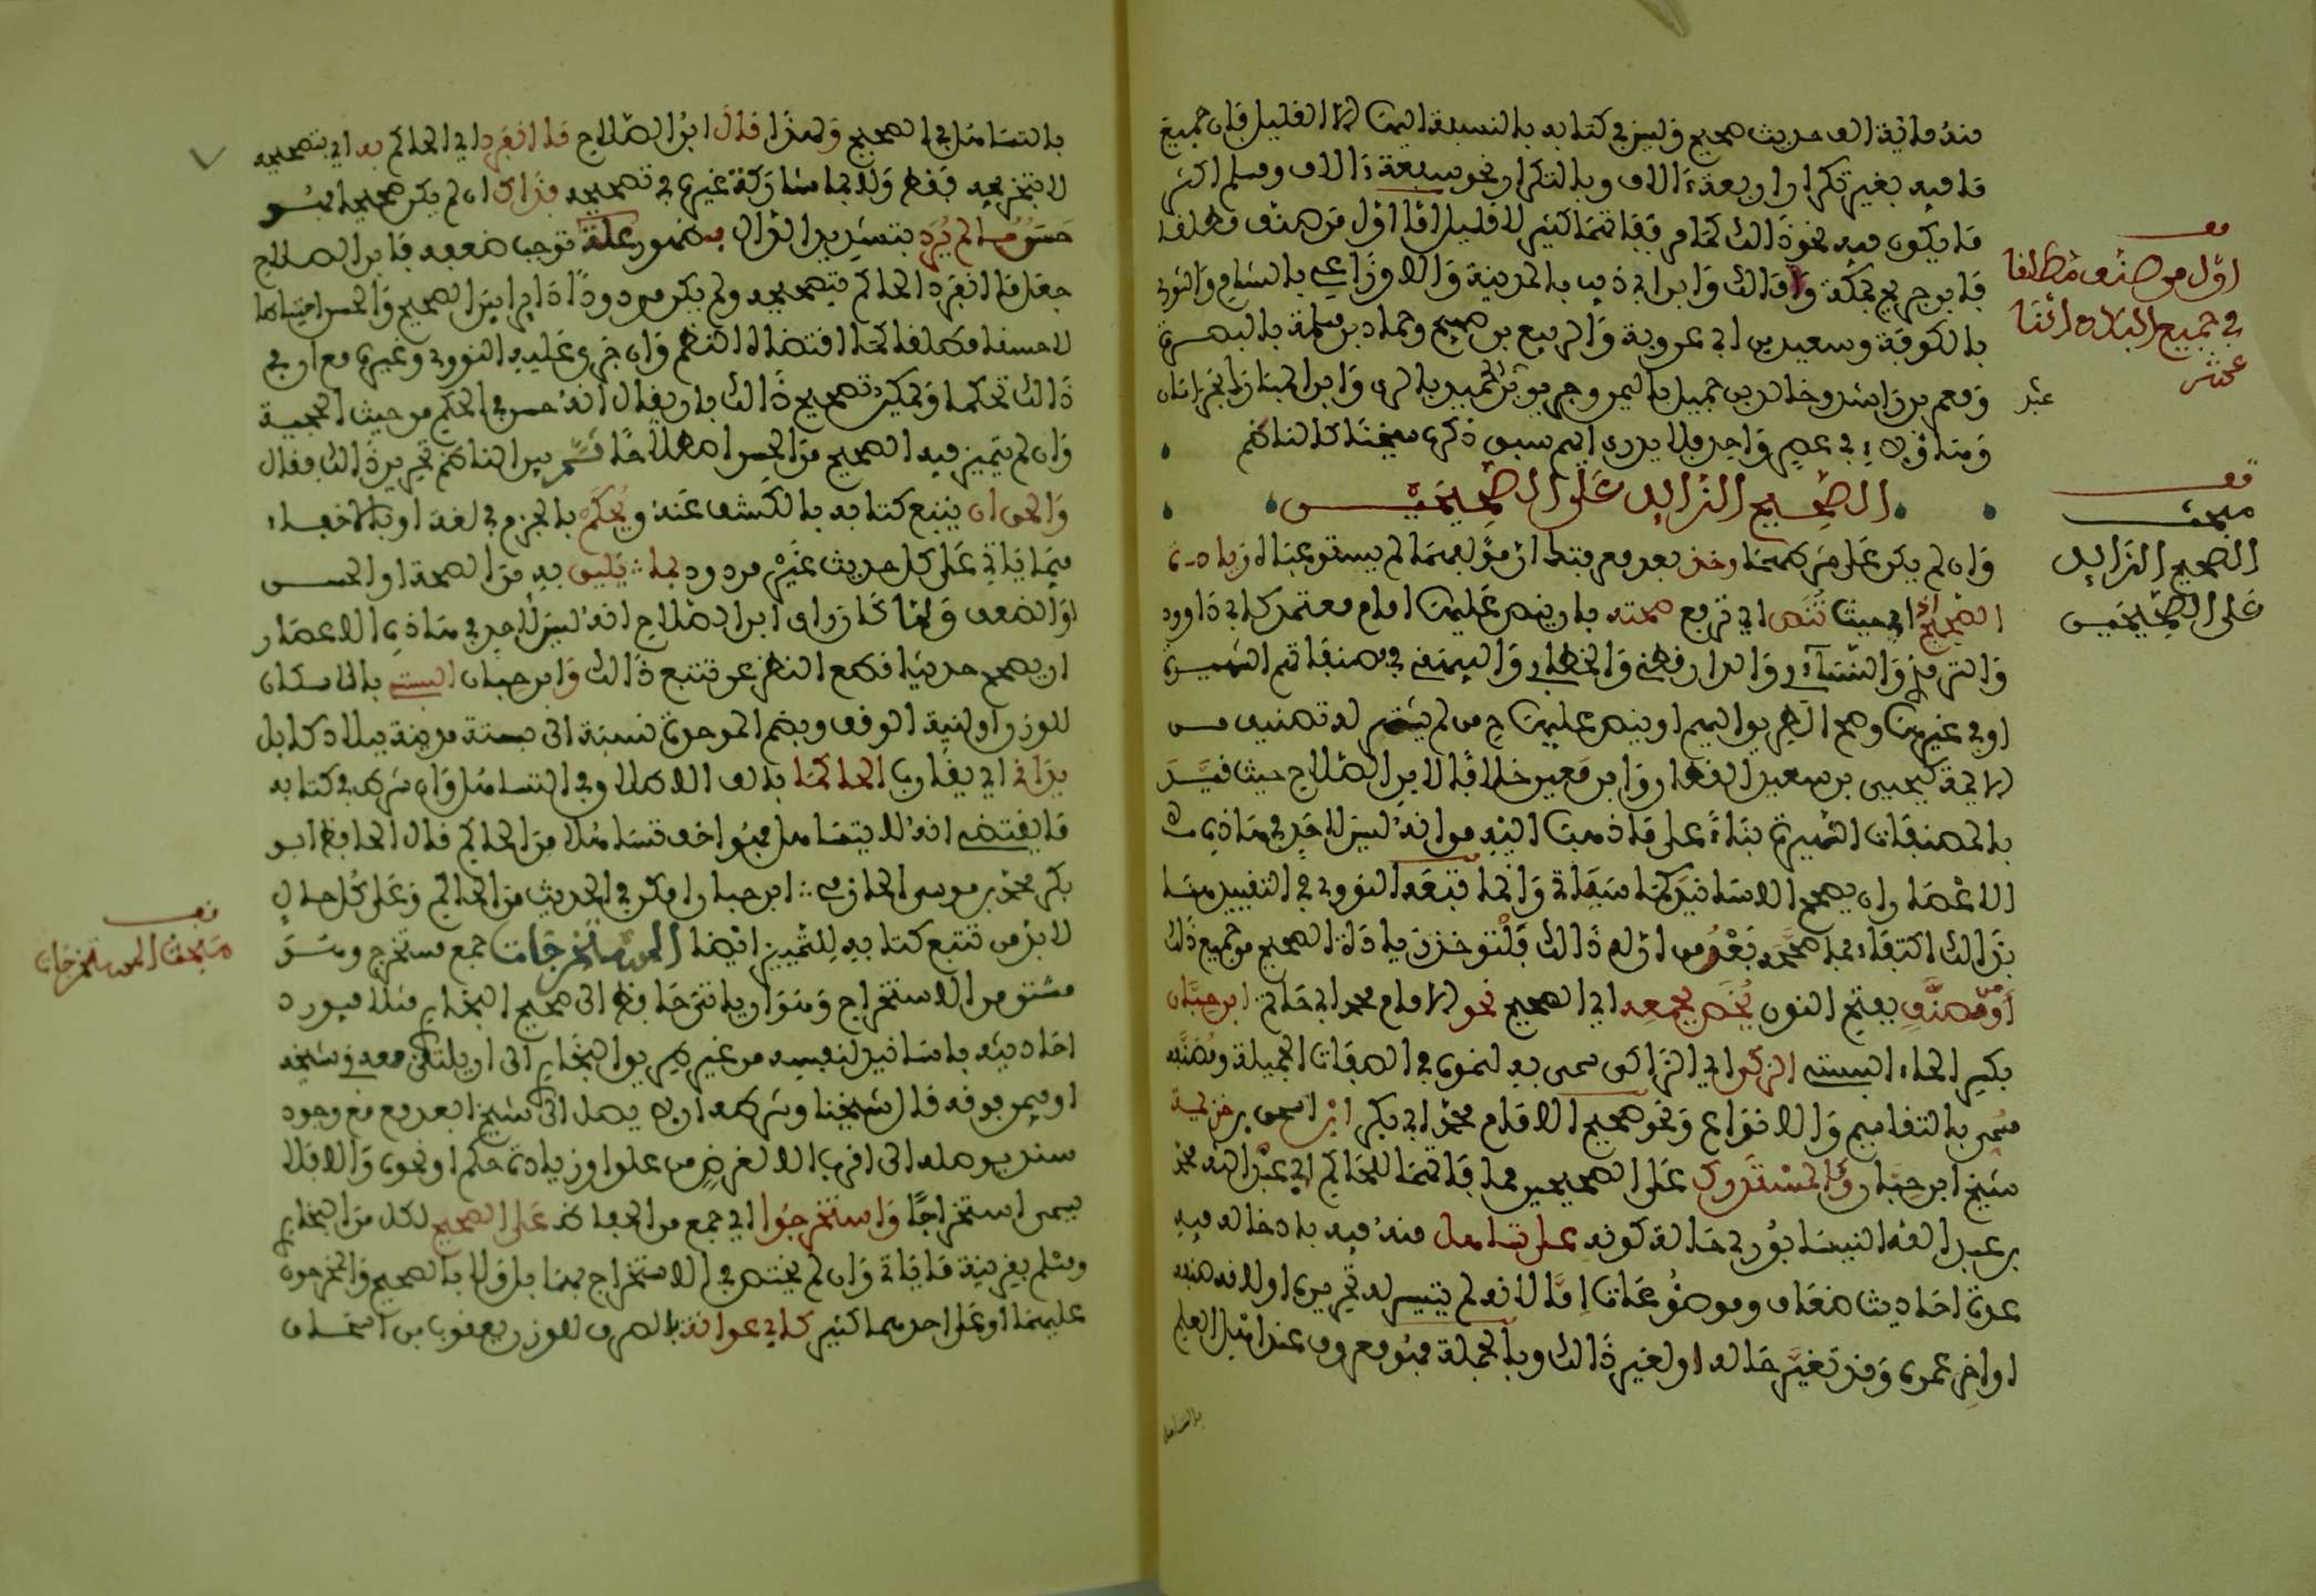 منه مائة ألف حديث صحيح وليس في كتابه بالنسبة إليها إلا القليل فإن جميع
ما فيه بغير تكرار أربعة ءالاف وبالتكرار نحو سبعة ءالاف ومسلم أكثر
فا يكون فيه نحو ذالك كما مر ففاتهما كثير لا قليل أما أول من صنف مطلقا
فابن جريج بمكة ومالك وابن أبي ذيب بالمدينة والاوزاعي بالشام والثوري
بالكوفة وسعيد بن أبي عروبة والربيع بن صبيح وحماد بن سلمة بالبصرة
ومعمر بن راشد وخالد بن جميل باليمن وجرير بن عبد الحميد بالري وابن المبارك بخراسان
وهاؤلاء في عصر واحد فلا يدرى أيهم سبق ذكره شيخنا كالناظم
الصحيح الزايد على الصحيحين
وإن لم يكن على شرطهما وخذ بعد معرفتك أن مؤلفيهما لم يستوعباه زيادة
الصحيح إذ أي حيث تنص أي ترفع صحته بأن ينص عليها إمام معتمد كأبي داوود
والترمذي والنسائي والدارقطني والخطابي والبيهقي في مصنفاتهم الشهيرة
أو في غيرها وصح الطريق إليهم أو ينص عليها من لم يشتهر له تصنيف من
الائمة كيحيى بن سعيد القطان وابن معين خلافا لابن الصلاح حيث قيد
بالمصنفات الشهيرة بناء على ما ذهب إليه من انه ليس لأحد في هاذه
الاعصار أن يصحح الاسانيد كما سيأتي وإنما تبعه النووي في التقييد هنا
بذالك اكتفاء بما صححه بعد من أن له ذالك فلتؤخذ زيادة الصحيح من جميع ذلك
أو من مصنف بفتح النون يخص بجمعه أي الصحيح نحو الإمام محمد أبي حاتم ابن حبان
بكسر الحاء البستي الزكي أي الزاكي سمي به لنموه في الصفات الجميلة ومصنفه
سمي بالتقاسيم والانواع ونحو صحيح الامام محمد أبي بكر ابن إسحق بن خزيمة
شيخ ابن حبان وكالمستدرك على الصحيحين مما فاتهما للحاكم أبي عبد الله محمد
بن عبد الله النيسابوري حالة كونه على تساهل منه فيه بإدخاله فيه
عدة أحاديث ضعاف وموضوعات إما لانه لم يتيسر له تحريره أو لانه صنفه
أواخر عمره وقد تغير حاله أو لغير ذالك وبالجملة فهو معروف عند أهل العلم
بالتساهل
قف
أول من صنف مطلقا
في جميع البلاد اثنا
عشر
عبد
قف
مبحث
الصحيح الزايد
على الصحيحين
بالتساهل في الصحيح ولهذا قال ابن الصلاح ما انفرد أي الحاكم به أي بتصحيحه
لا بتخريجه فقط ولا بما شاركه غيره في تصحيحه فذاك إن لم يكن صحيحا فهو
حسن ما لم يرد بتشديد الدال بظهور علة توجب ضعفه فابن الصلاح
جعل ما انفرد الحاكم بتصحيحه ولم يكن مردودا دايرا بين الصحيح والحسن احتياطا
لا حسنا مطلقا كما اقتضاه النظم وإن جرى عليه النووي وغيره مع أن في
ذالك تحكما ويمكن تصحيح ذالك بأن يقال أنه حسن في الحكم من حيث الحجية
وإن لم يتميز فيه الصحيح من الحسن اصطلاحا ثم بين الناظم تحرير ذالك فقال
والحق أن يتبع كتابه بالكشف عنه ويحكم بالجزم في لغة أو بالاخفاء
فيما يأتي على كل حديث غير مردود بما يليق به من الصحة أو الحسن
أو الضعف ولما كان رأي ابن الصلاح انه ليس لأحد في هاذه الاعصار
أن يصحح حديثا قطع النظر عن تتبع ذالك وابن حبان البستي بالاسكان
للوزن أو لنية الوقف وبضم الموحدة نسبة الى بستة مدينة ببلاد كابل
يدانى أي يقارب الحاكما بألف الاطلاق في التساهل وإن شرط في كتابه
ما يقتضي انه لا يتساهل فهو أخف تساهلا من الحاكم قال الحافظ أبو
بكر محمد بن موسى الحازمي ابن حبان أمكن في الحديث من الحاكم وعلى كل حال
لا بد من تتبع كتابه للتمييز أيضا المستخرجات جمع مستخرج وهو
مشتق من الاستخراج وهو أن ياتي حافظ الى صحيح البخاري مثلا فيورد
أحاديثه بأسانيد لنفسه من غير طريق البخاري الى أن يلتقي معه في شيخه
أو فيمن فوقه قال شيخنا وشرطه أن لا يصل الى شيخ أبعد مع وجود
سند يوصله الى أقرب إلا لغرض من علو أو زيادة حكم أو نحوه وإلا فلا
يسمى استخراجا واستخرجوا أي جمع من الحفاظ على الصحيح لكل من البخاري
ومسلم بقرينة ما ياتي وإن لم يختص في الاستخراج بهما بل ولا بالصحيح والمخرجون
عليهما أو على أحدهما كثير كأبي عوانة بالصرف للوزن يعقوب بن اسحاق
قف
مبحث المستخرجات